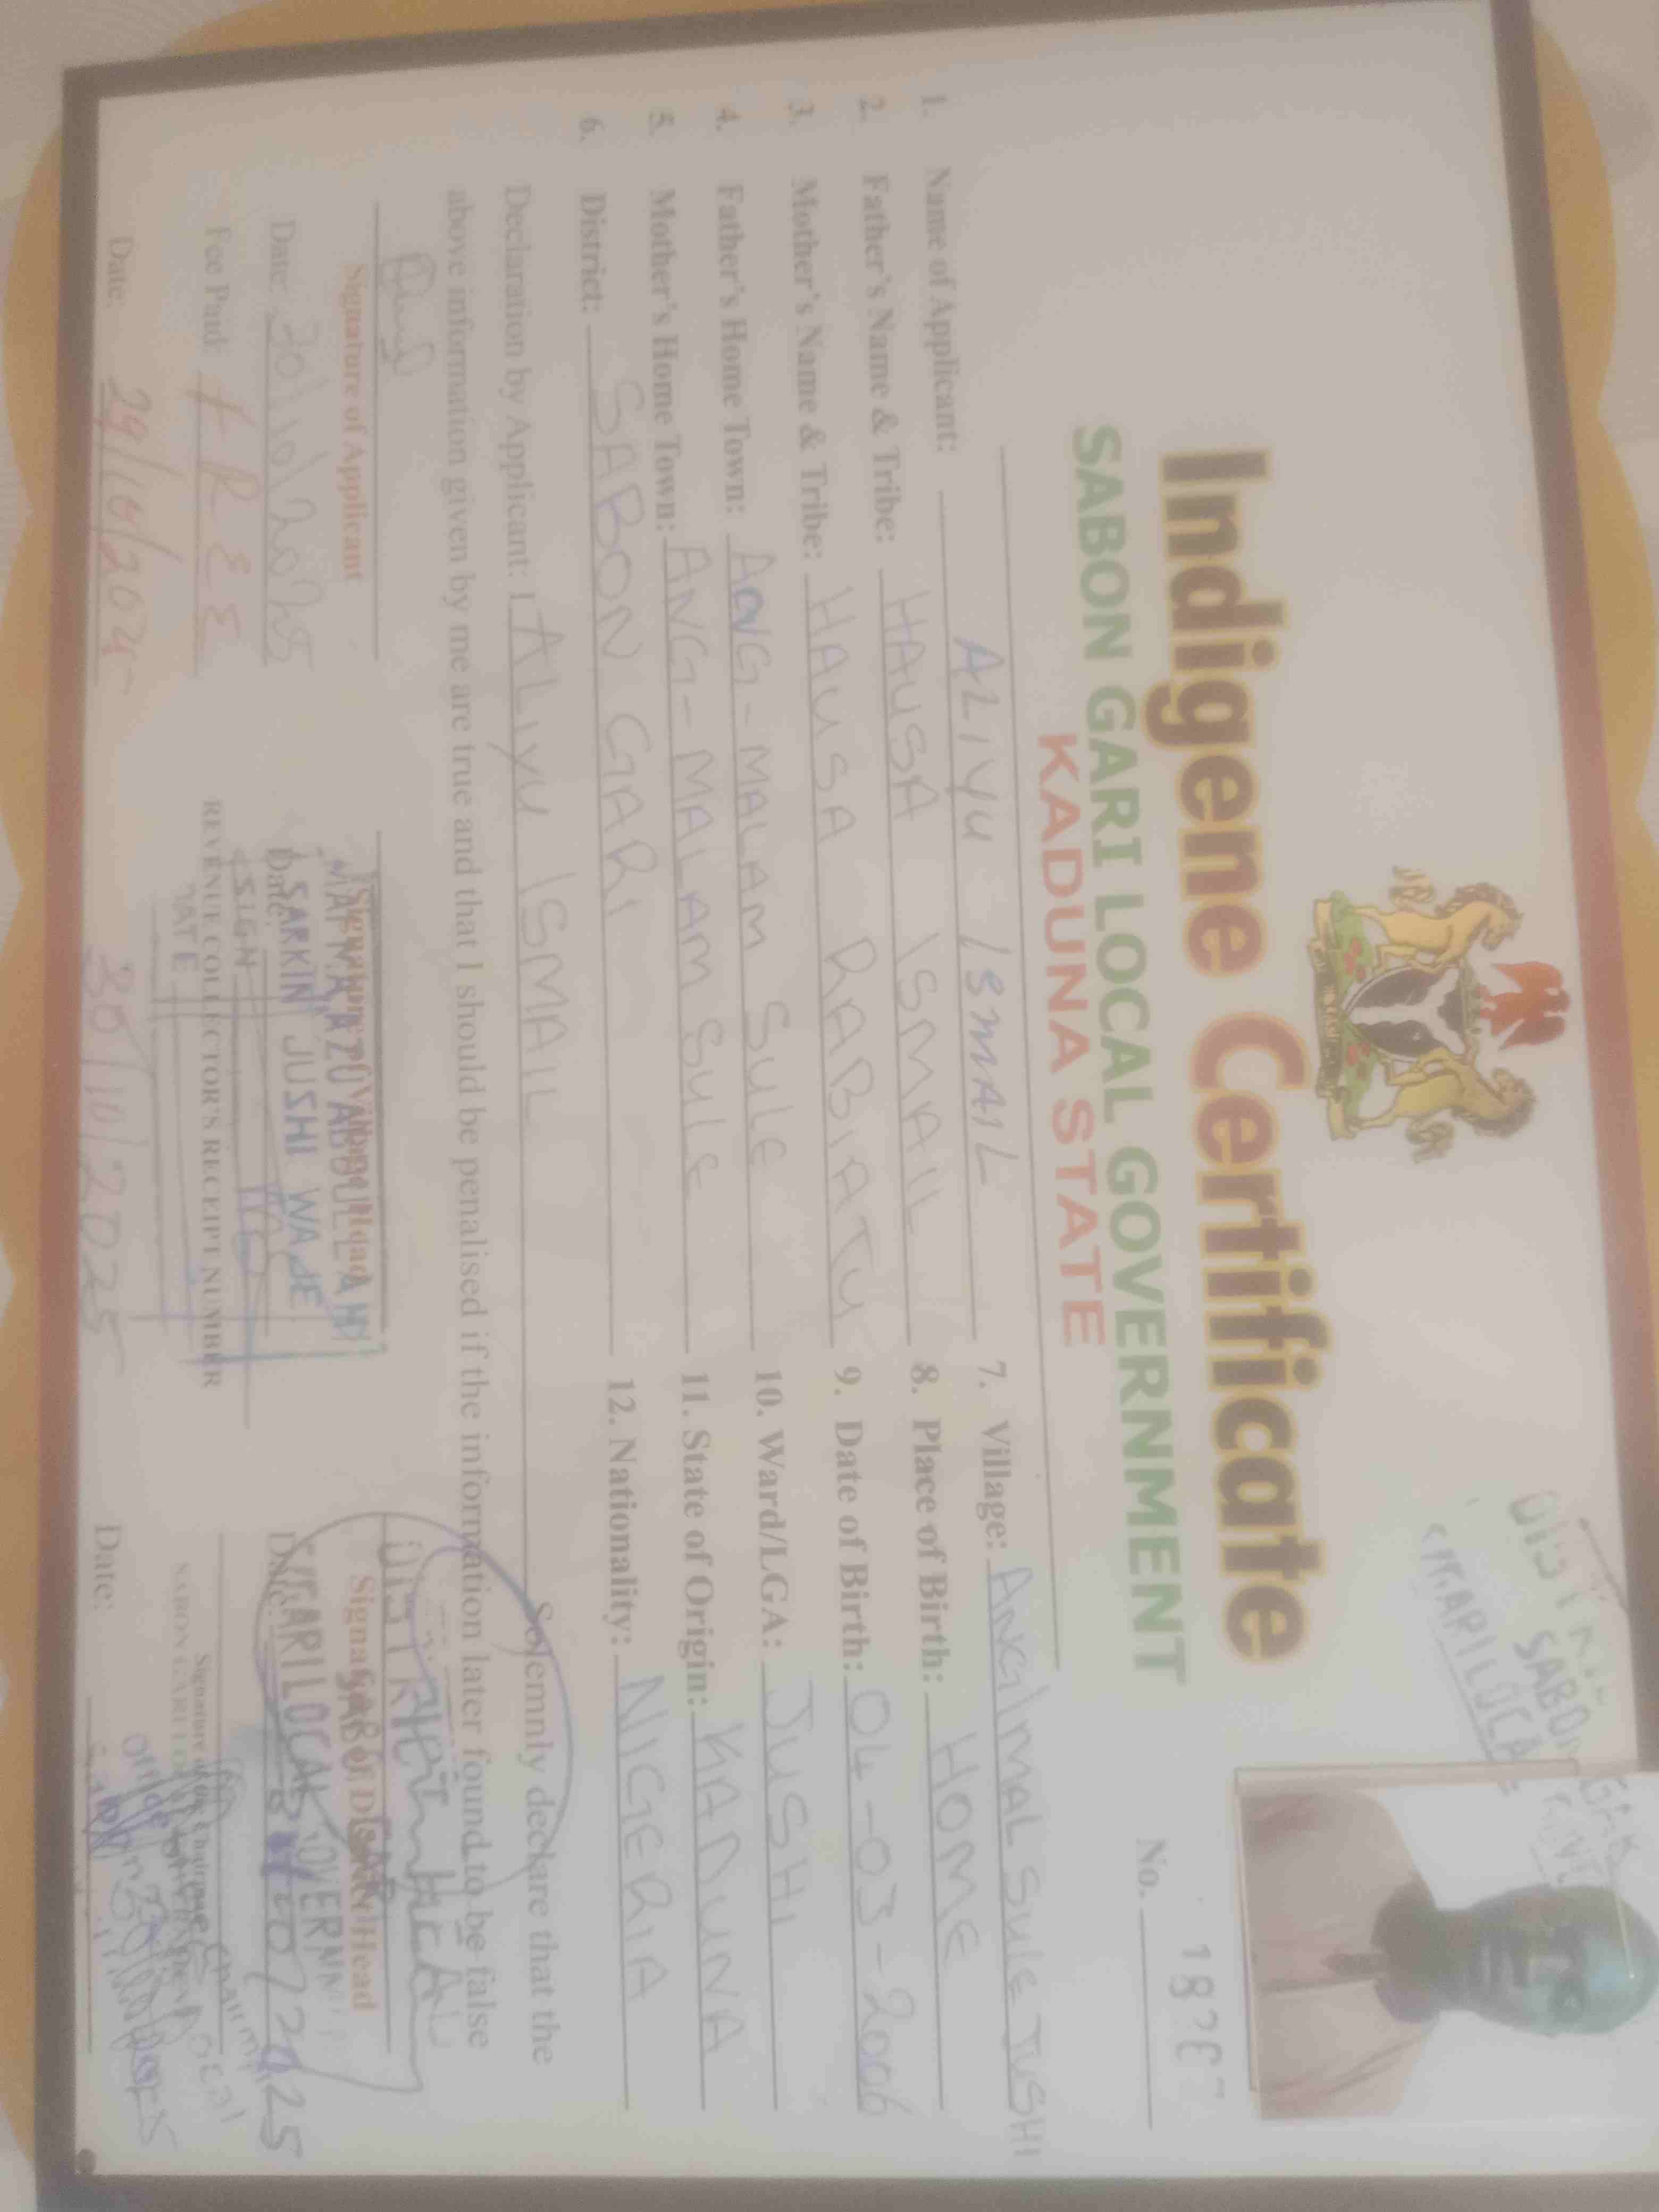 DISTRICT
SABON GARI
GARI LOCAL GOVE
Indigene Certificate
SABON GARI LOCAL GOVERNMENT
KADUNA STATE
No.
1. Name of Applicant: ALIYU ISMAIL
2. Father's Name & Tribe: HAUSA ISMAIL
3. Mother's Name & Tribe: HAUSA RABIATU
4. Father's Home Town: ANG-MALAM SULE
5. Mother's Home Town: ANG-MALAM SULE
6. District: SABON GARI
7. Village: ANG/MAL SULE JUSHI
8. Place of Birth: HOME
9. Date of Birth: 04-03-2006
10. Ward/LGA: JUSHI
11. State of Origin: KADUNA
12. Nationality: NIGERIA
Declaration by Applicant: I ALIYU ISMAIL Solemnly declare that the
above information given by me are true and that I should be penalised if the information later found to be false
Signature of Applicant
Date: 30/10/2025
Fee Paid: FREE
Date: 29/10/2025
Signature of Village Head
MAI MA'AZU ABDULLAHI
SARKIN JUSHI WAJE
Date:
SIGN
REVENUE COLLECTOR'S RECEIPT NUMBER
DATE
30/10/2025
DISTRICT HEAD
Signature of District Head
SABON GARI
GARI LOCAL GOVERNM
Date: /10/2025
Signature of the Chairman
SABON GARI LO
Date: